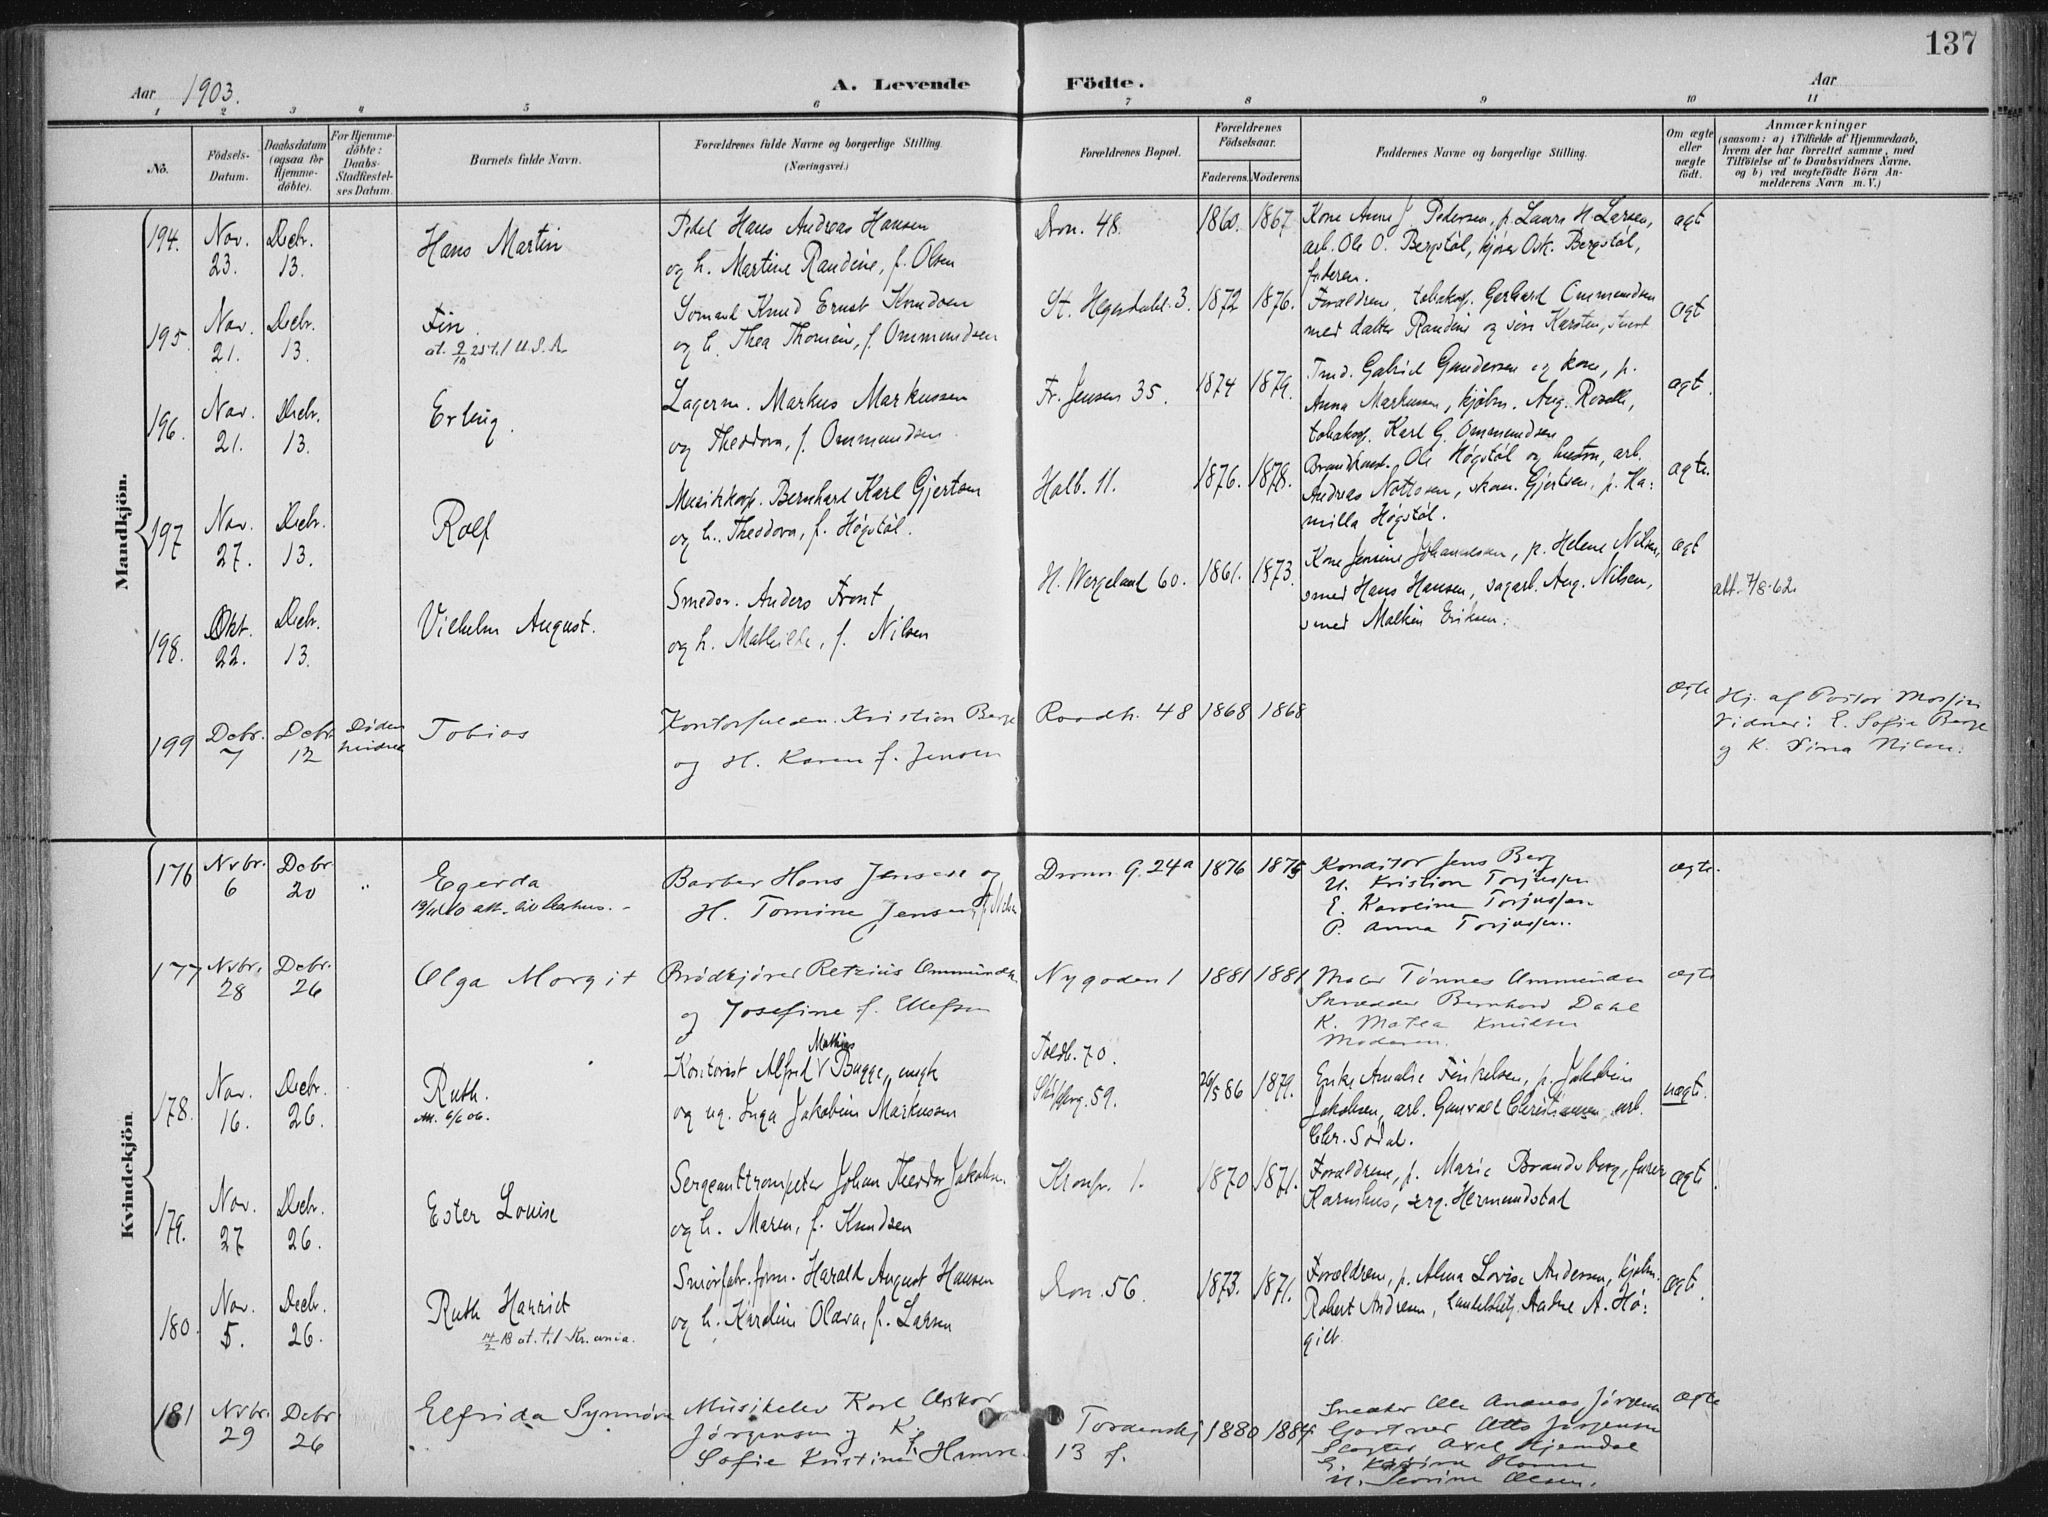 137
Aar 1903.
A. Levende Födte.
Aar
1 2 3 4 5 6 7 8 9 10 11
No.
Födsels-Datum.
Daabsdatum (ogsaa for Hjemmedöbte).
For Hjemmedöbte: Daabs-Stadfæstelses Datum.
Barnets fulde Navn.
Forældrenes fulde Navne og borgerlige Stilling.
(Næringsvei.)
Forældrenes Bopæl.
Forældrenes Födselsaar.
Faderens. Moderens
Faddernes Navne og borgerlige Stilling.
Om ægte eller uægte födt.
Anmærkninger
(saasom: a) i Tilfælde af Hjemmedaab,
hvem der har forrettet samme, med
Tilföielse af to Daabsvidners Navne.
og b) ved uægtefödte Börn Anmelderens Navn m. V.)
Mandkjön.
194. Nov. 23. Decbr. 13. Hans Martin
Pedel Hans Andreas Hansen
og h. Martine Randine, f. Olsen
Dron. 48. 1860. 1867.
Kone Anne J. Pedersen, p. Laura H. Larsen,
arb. Ole O. Bergstøl, kjører Osk. Bergstøl,
faderen.
ægt
195. Nov. 21. Decbr. 13. Fin.
at. 9/10 25 til U.S.A
Sømand Knud Ernst Knudsen
og h. Thea Thomine, f. Ommundsen
St. Hegerdahl. 3. 1872 1876.
Forældrene, tobaksp. Gerhard Ommundsen
med datter Randine og søn Karsten,
ægt
196. Nov. 21. Decbr. 13. Erling.
Lagerm. Markus Markussen
og Theodora, f. Ommundsen.
Fr. Jensen 35. 1874 1879.
Gabriel Gundersen og kone, p.
Anna Markussen, kjøbm. Aug. Roselle,
tobaksp. Karl G. Ommundsen
ægt.
197 Nov. 27. Decbr. 13. Rolf
Musikkorp. Bernhard Karl Gjertsen
og h. Theodora, f. Høgstøl.
Holb. 11. 1876. 1878.
Brandkonst. Ole Høgstøl og hustru, arb.
Andreas Nottosen, skom. Gjertsen, p. Ka-
milla Høgstøl.
ægte.
198. Okt. 22. Decbr. 13. Vilhelm August.
Smedsv. Anders Front
og h. Mathilde, f. Nilsen
H. Wergeland 60. 1861. 1873.
Kone Jensine Johannesen, p. Helene Nilsen,
smed Hans Hansen, sagarb. Aug. Nilsen,
smed Malkin Eriksen.
ægt
att. 7/8-62.
199 Decbr. 7 Decbr 12 Døden Tobias
Kontorfuldm. Kristian Berge
og H. Karen f. Jensen
Raadh. 48 1868 1868
ægte
Hj. af Pastor
Vidner: E. Sofie Berge
og K. Sina Nilsen.
Kvindekjön
176 Nvbr. 6 Dcbr 20 " Egerda
Barber Hans Jensen og
H. Tomine Jensen f. Nilsen
Dronn. g. 24a 1876 1875
Konditor Jens Berg
U. Kristian Torjussen
E. Karoline Torjussen
P. Anna Torjussen.
ægte.
177 Nvbr. 28 Dcbr. 26 Olga Margit
Brødkjører Retzius Ommundsen
og Josefine f. Ellefsen
Nygaden 1 1881 1881
Maler Tønnes Ommundsen
Skrædder Bernhard Dahl
K. Matea Knudsen
Moderen.
ægte
178. Nov. 16. Decbr. 26. Ruth.
att. 6/6 06.
Mathias
Kontorist Alfred Bugge, ungk
og ug. Inga Jakobine Markussen
Toldb. 70.
Skippergt. 59.
26/5 86 1879.
Enke Amalie Finkelsen, p. Jakobine
Jakobsen, arb. Gunvald Christiansen, arb.
Chr. Sødal.
uægt.
179. Nov. 27 Decbr. 26. Ester Louise
Sergeanttrompeter Johan Theodor Jakobsen
og h. Maren, f. Knudsen
Kronpr. 1. 1870 1871.
Forældrene, p. Marie Brandsberg, furer
Karmhus, serg. Hermundstad
ægt.
180. Nov. 5. Decbr. 26. Ruth Harriet
14/2 18 at. til Kr.ania.
Smørfabr. form. Harald August Hansen
og h. Karoline Olava, f. Larsen
Dron. 56. 1873. 1871.
Forældrene, p. Alma Lovise Andersen, kjøbm.
Robert Andresen, Aadne A. Hø-
gilt.
ægt.
181 Nvbr. 29 Dcbr 26 Elfrida Synnøve
Musikelev Karl Oskar
Jørgensen og K.
Sofie Kristine f. Hamre.
Tordenskj 13 f. 1880 1884
Snedker Ole Andreas Jørgensen
Gartner Otto Jørgensen
Slagter Axel Hjemdal
U. Severine Olsen.
ægte